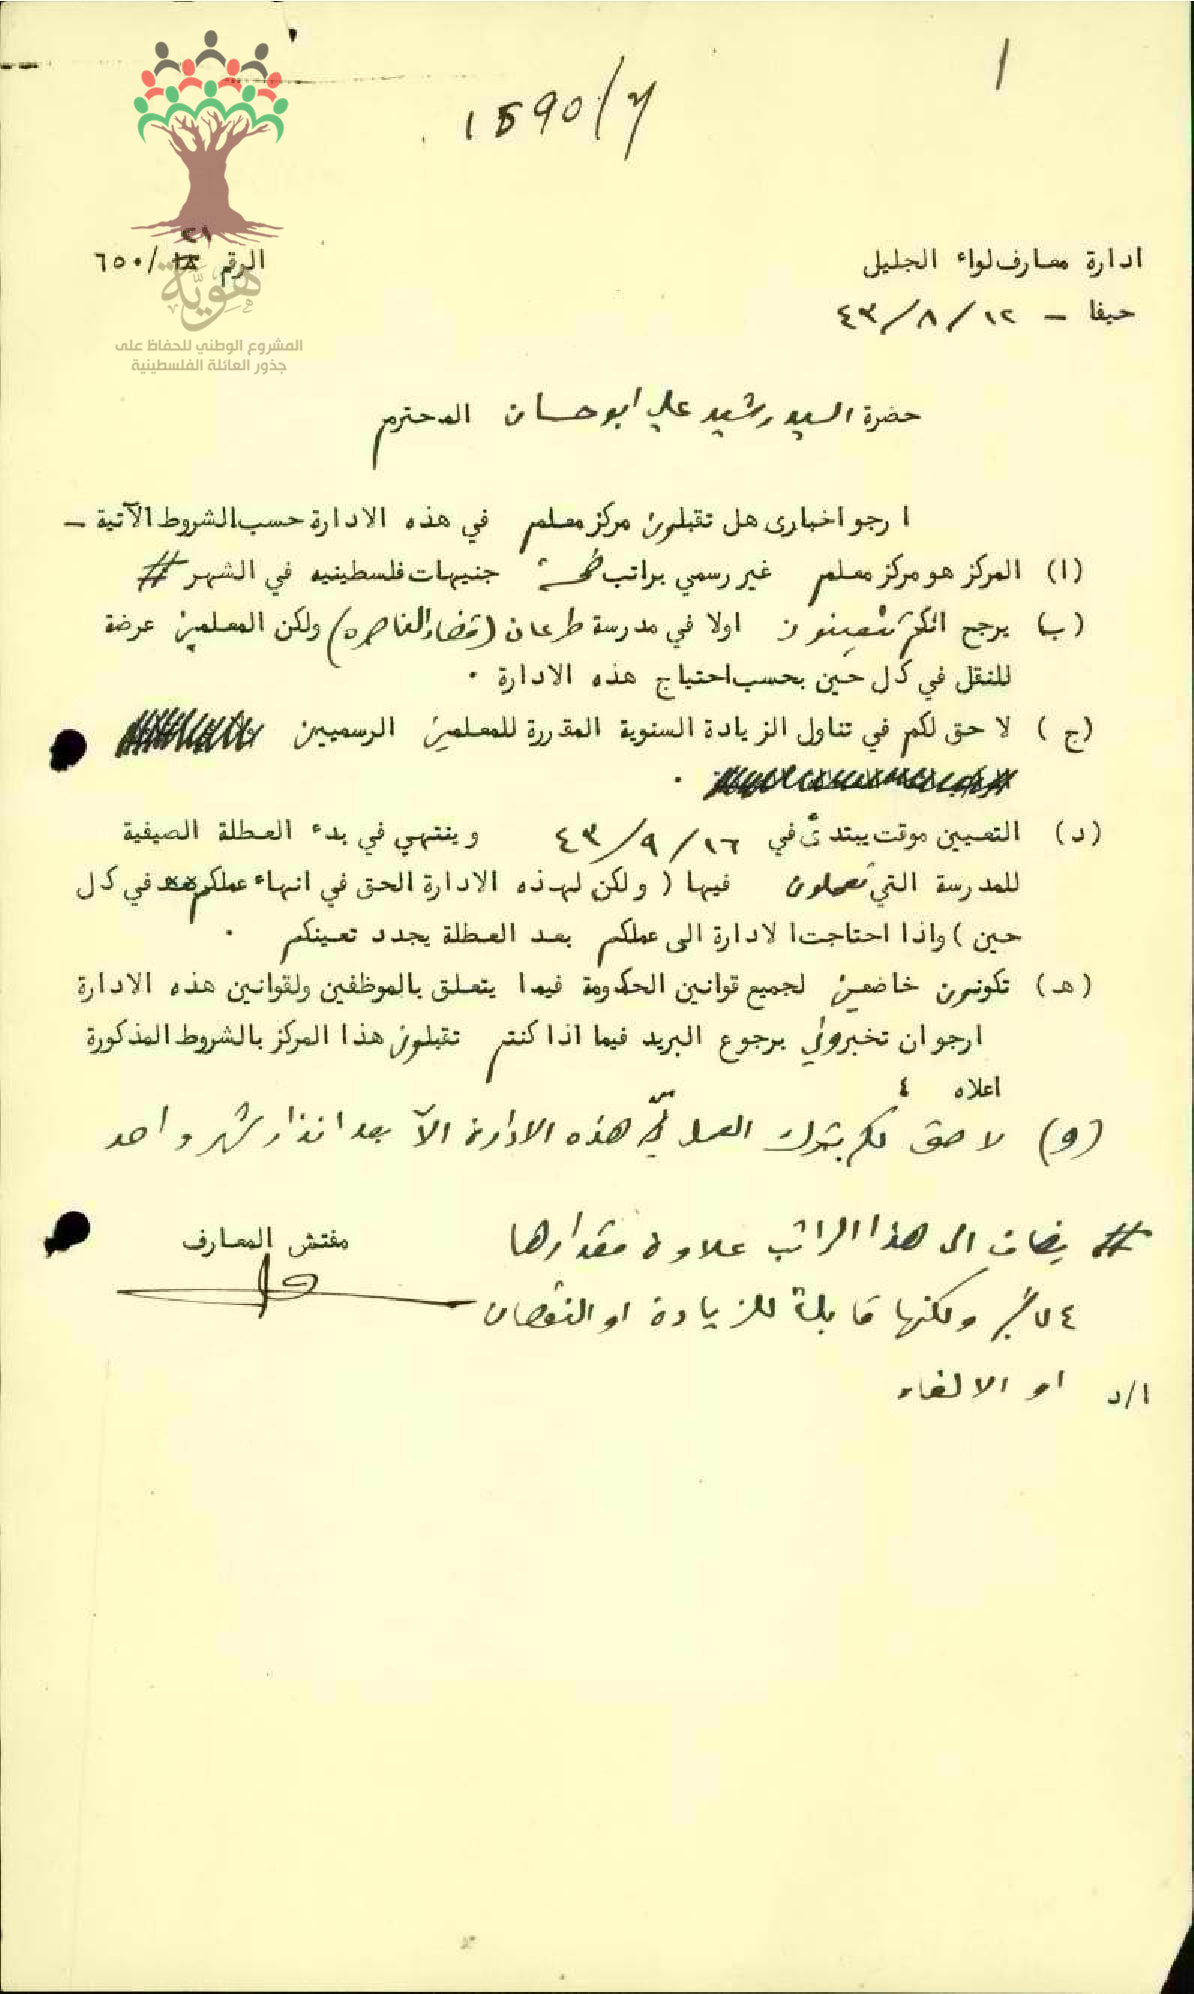 1
1590/7
ادارة معارف لواء الجليل
الرقم ٢١ ١٨/٦٥٠
حيفا – ١٢/٨/٤٣
هوية
المشروع الوطني للحفاظ على
جذور العائلة الفلسطينية
حضرة السيد رشيد علي ابو حسان المحترم
ارجو اخباري هل تقبلون مركز معلم في هذه الادارة حسب الشروط الآتية –
(ا) المركز هو مركز معلم غير رسمي براتب خمسة جنيهات فلسطينيه في الشهر #
(ب) يرجح انكم تعينون اولا في مدرسة طرعان (قضاء الناصره) ولكن المعلمين عرضة
للنقل في كل حين بحسب احتياج هذه الادارة .
(ج) لا حق لكم في تناول الزيادة السنوية المقررة للمعلمين الرسميين
.
(د) التعيين موقت يبتدئ في ١٦/٩/٤٣ وينتهي في بدء العطلة الصيفية
للمدرسة التي تعملون فيها (ولكن لهذه الادارة الحق في انهاء عملكم في كل
حين) واذا احتاجت الادارة الى عملكم بعد العطلة يجدد تعينكم .
(هـ) تكونون خاضعين لجميع قوانين الحكومة فيما يتعلق بالموظفين ولقوانين هذه الادارة
ارجو ان تخبروني برجوع البريد فيما اذا كنتم تقبلون هذا المركز بالشروط المذكورة
اعلاه ٤
(و) لا حق لكم بترك العمل في هذه الادارة الآ بعد انذار شهر واحد
# يضاف الى هذا الراتب علاوة مقدارها
مفتش المعارف
٧٤٪ ولكنها قابلة للزيادة او النقصان
او الالغاء
ا/د